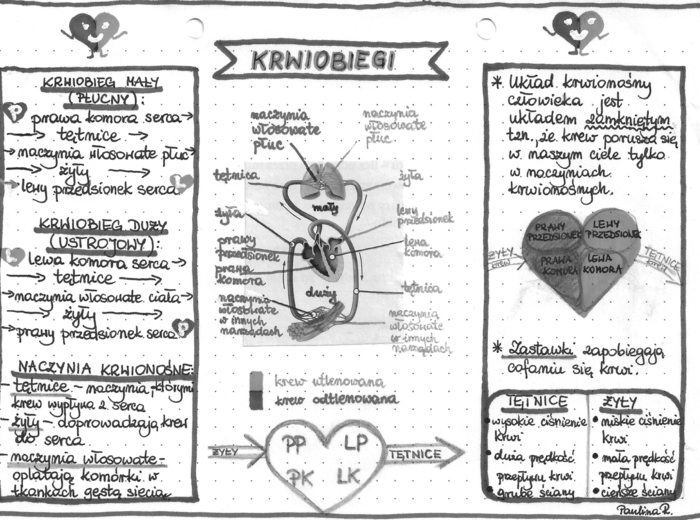 KRWIOBIEGI
KRWIOBIEG MAŁY
(PŁUCNY):
P
prawa komora serca →
→ tętnice →
→ naczynia włosowate płuc
→ żyły →
→ lewy przedsionek serca L
KRWIOBIEG DUŻY
(USTROJOWY):
L
lewa komora serca →
→ tętnice →
→ naczynia włosowate ciała →
→ żyły →
→ prawy przedsionek serca P
NACZYNIA KRWIONOŚNE:
- tętnice - naczynia, którymi
krew wypływa z serca
- żyły - doprowadzają krew
do serca
- naczynia włosowate -
oplatają komórki w
tkankach gęstą siecią
naczynia
włosowate
płuc
naczynia
włosowate
płuc
tętnica
żyła
mały
żyła
lewy
przedsionek
prawy
przedsionek
lewa
komora
prawa
komora
duży
tętnica
naczynia
włosowate
w innych
narządach
naczynia
włosowate
w innych
narządach
krew utlenowana
krew odtlenowana
ŻYŁY
PP LP
PK LK
TĘTNICE
* Układ krwionośny
człowieka jest
układem zamkniętym
tzn., że krew porusza się
w naszym ciele tylko
w naczyniach
krwionośnych.
PRAWY
PRZEDSIONEK
LEWY
PRZEDSIONEK
PRAWA
KOMORA
LEWA
KOMORA
ŻYŁY
krew
TĘTNICE
krew
* Zastawki zapobiegają
cofaniu się krwi.
TĘTNICE
• wysokie ciśnienie
krwi
• duża prędkość
przepływu krwi
• grube ściany
ŻYŁY
• niskie ciśnienie
krwi
• mała prędkość
przepływu krwi
• cieńsze ściany
Paulina R.